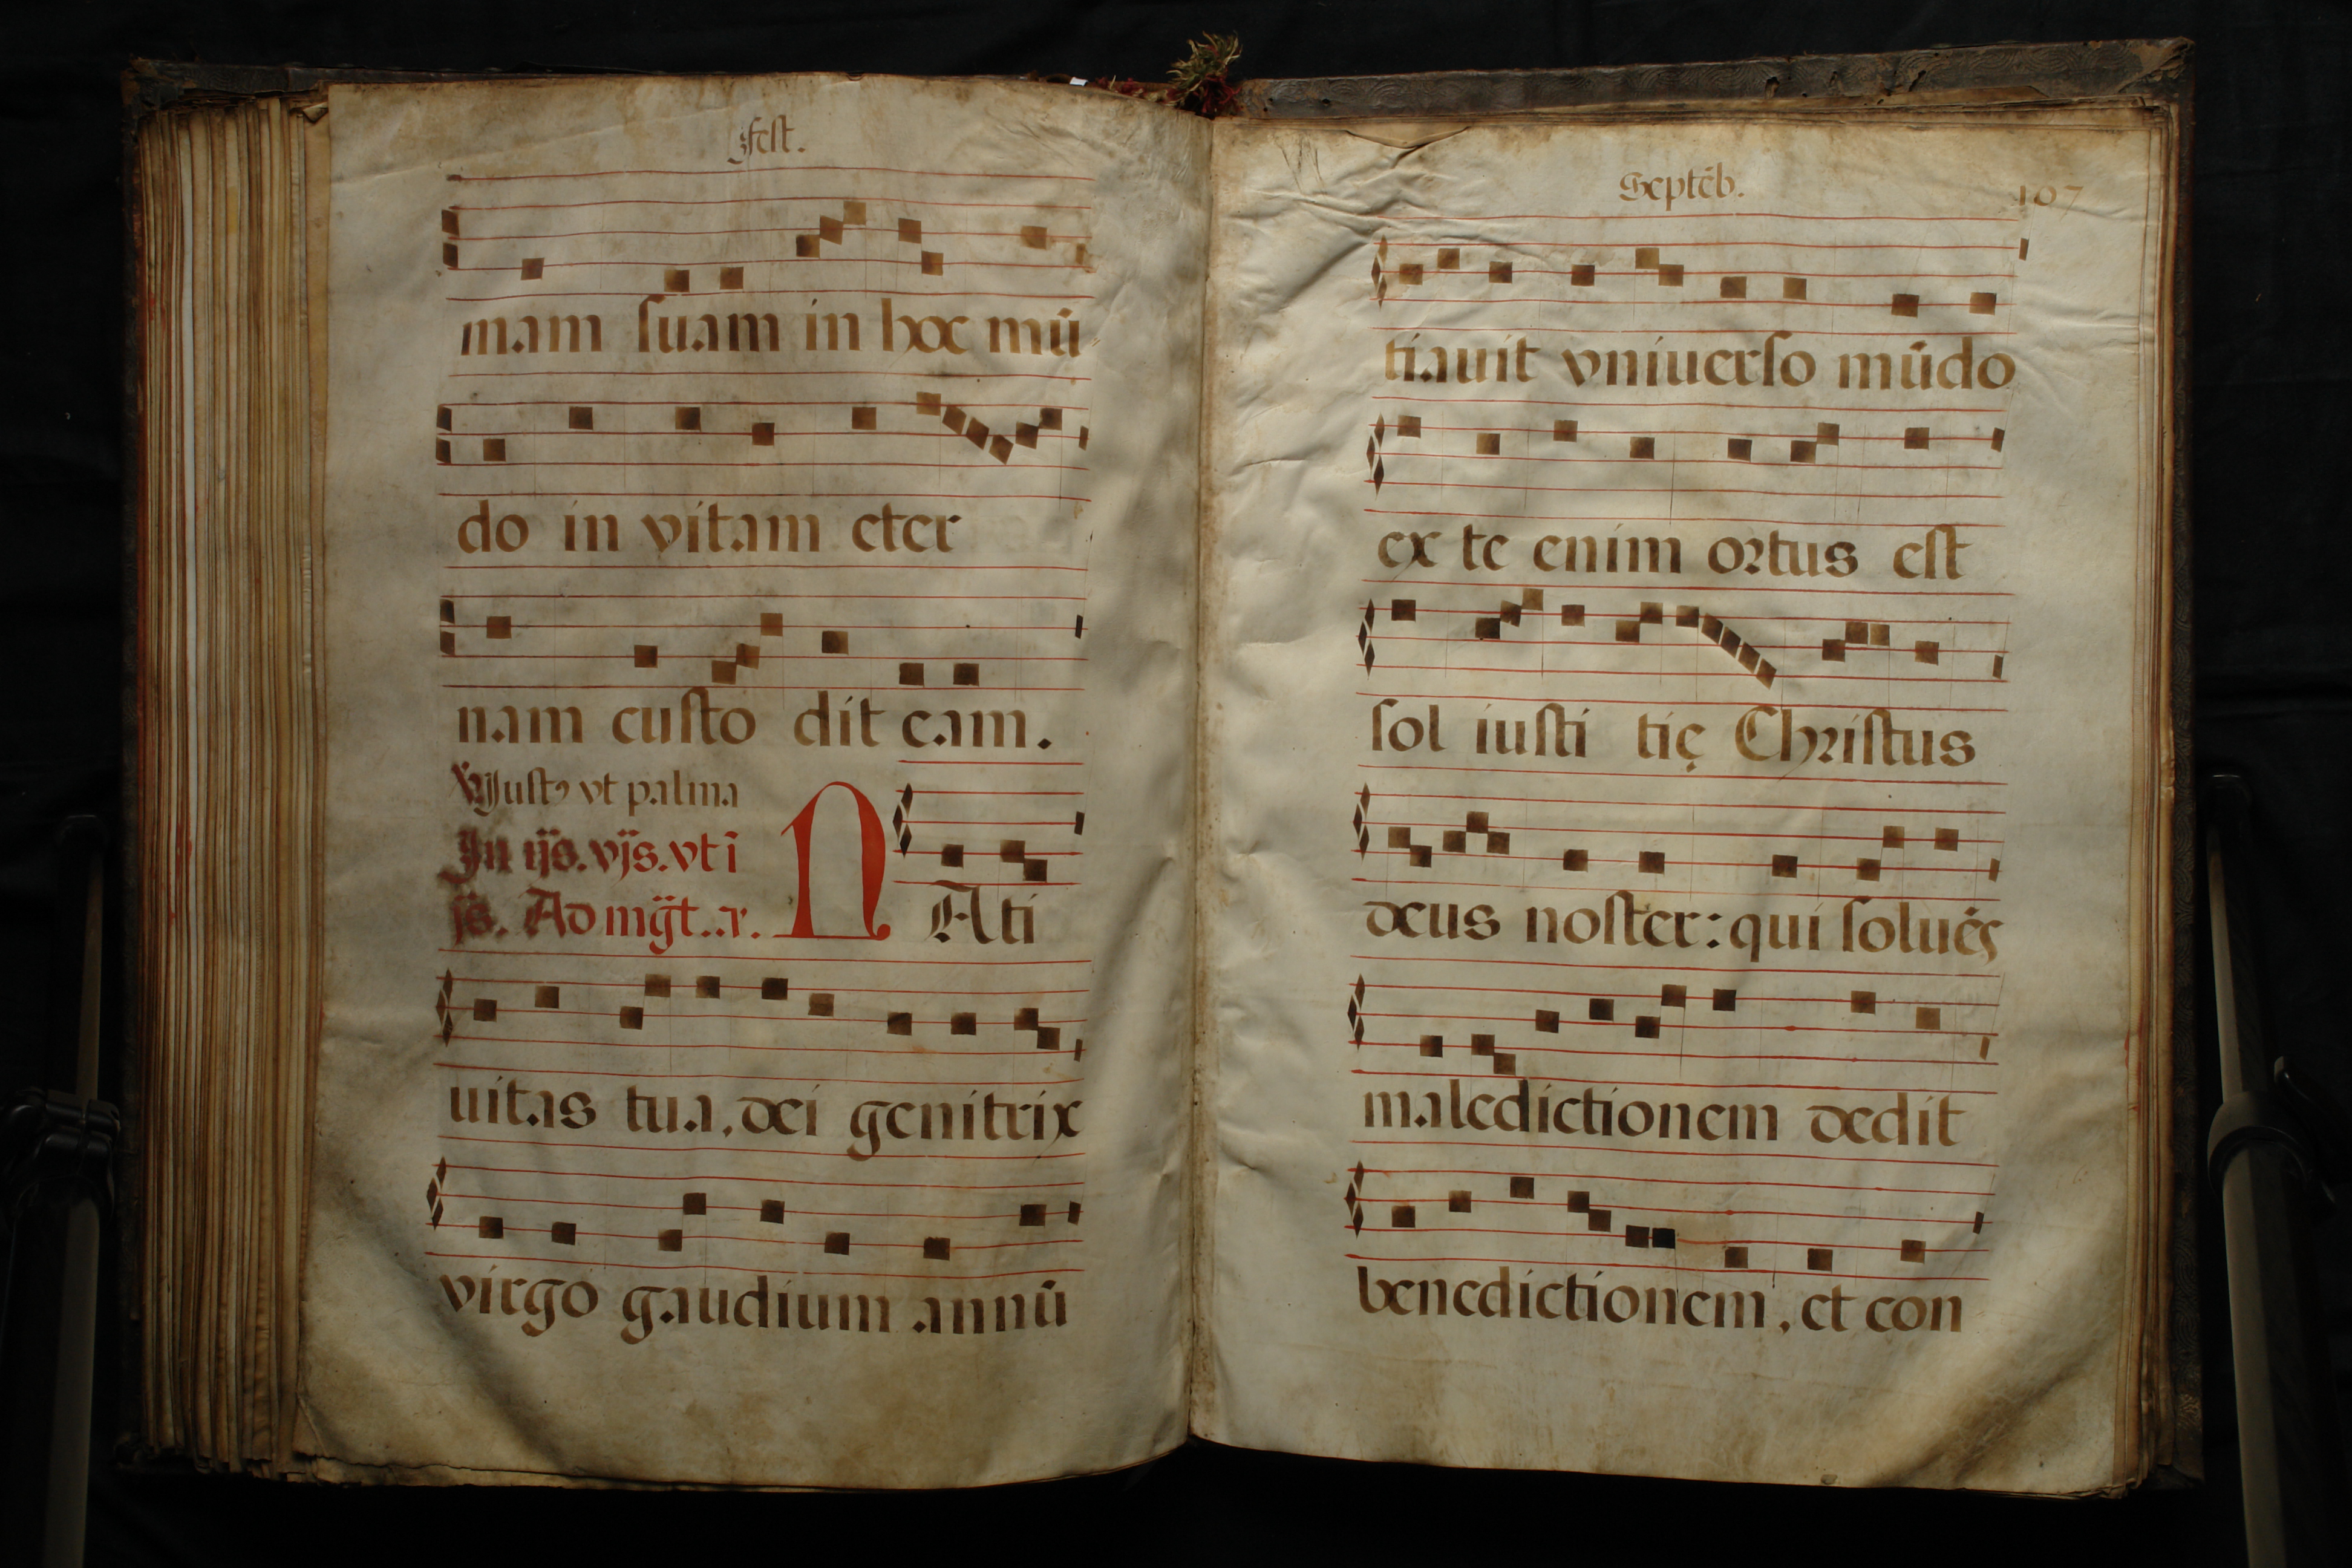 Fest.
mam suam in hoc mū
do in vitam eter
nam custo dit eam.
℣. Justꝰ vt palma
In ijs. vjs. vt ī
js. Ad mg̈t. .
N Ati
uitas tua, dei genitrix
virgo gaudium annū
Septēb. 107
tiauit vniuerso mūdo
ex te enim ortus est
sol iusti tię Christus
deus noster: qui soluēs
maledictionem dedit
benedictionem, et con